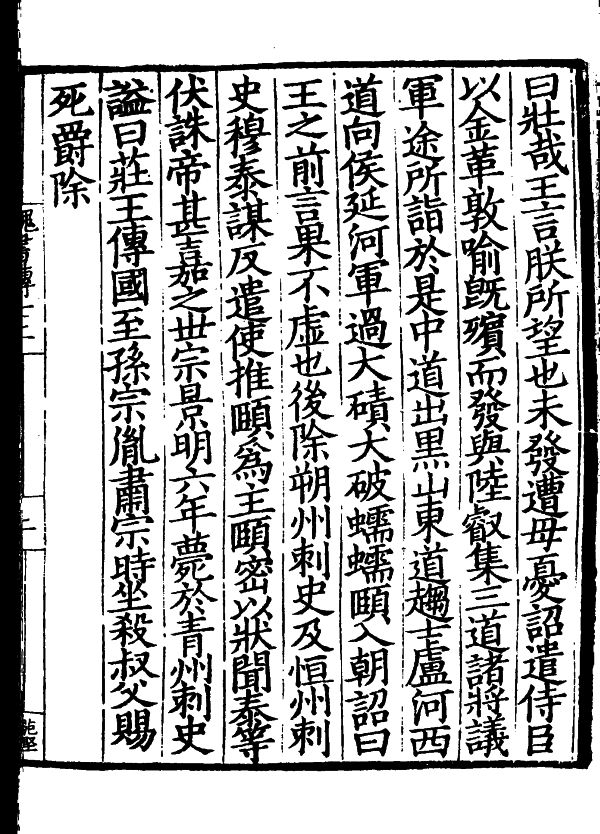 曰壯哉王言朕所望也未發遭母憂詔遣侍臣
以金革敦喻既殯而發與陸叡集三道諸將議
軍途所詣於是中道出黑山東道趨士盧河西
道向侯延河軍過大磧大破蠕蠕頤入朝詔曰
王之前言果不虛也後除朔州刺史及恒州刺
史穆泰謀反遣使推頤爲王頤密以狀聞泰等
伏誅帝甚嘉之世宗景明六年薨於青州刺史
謚曰莊王傳國至孫宗胤肅宗時坐殺叔父賜
死爵除
魏書傳